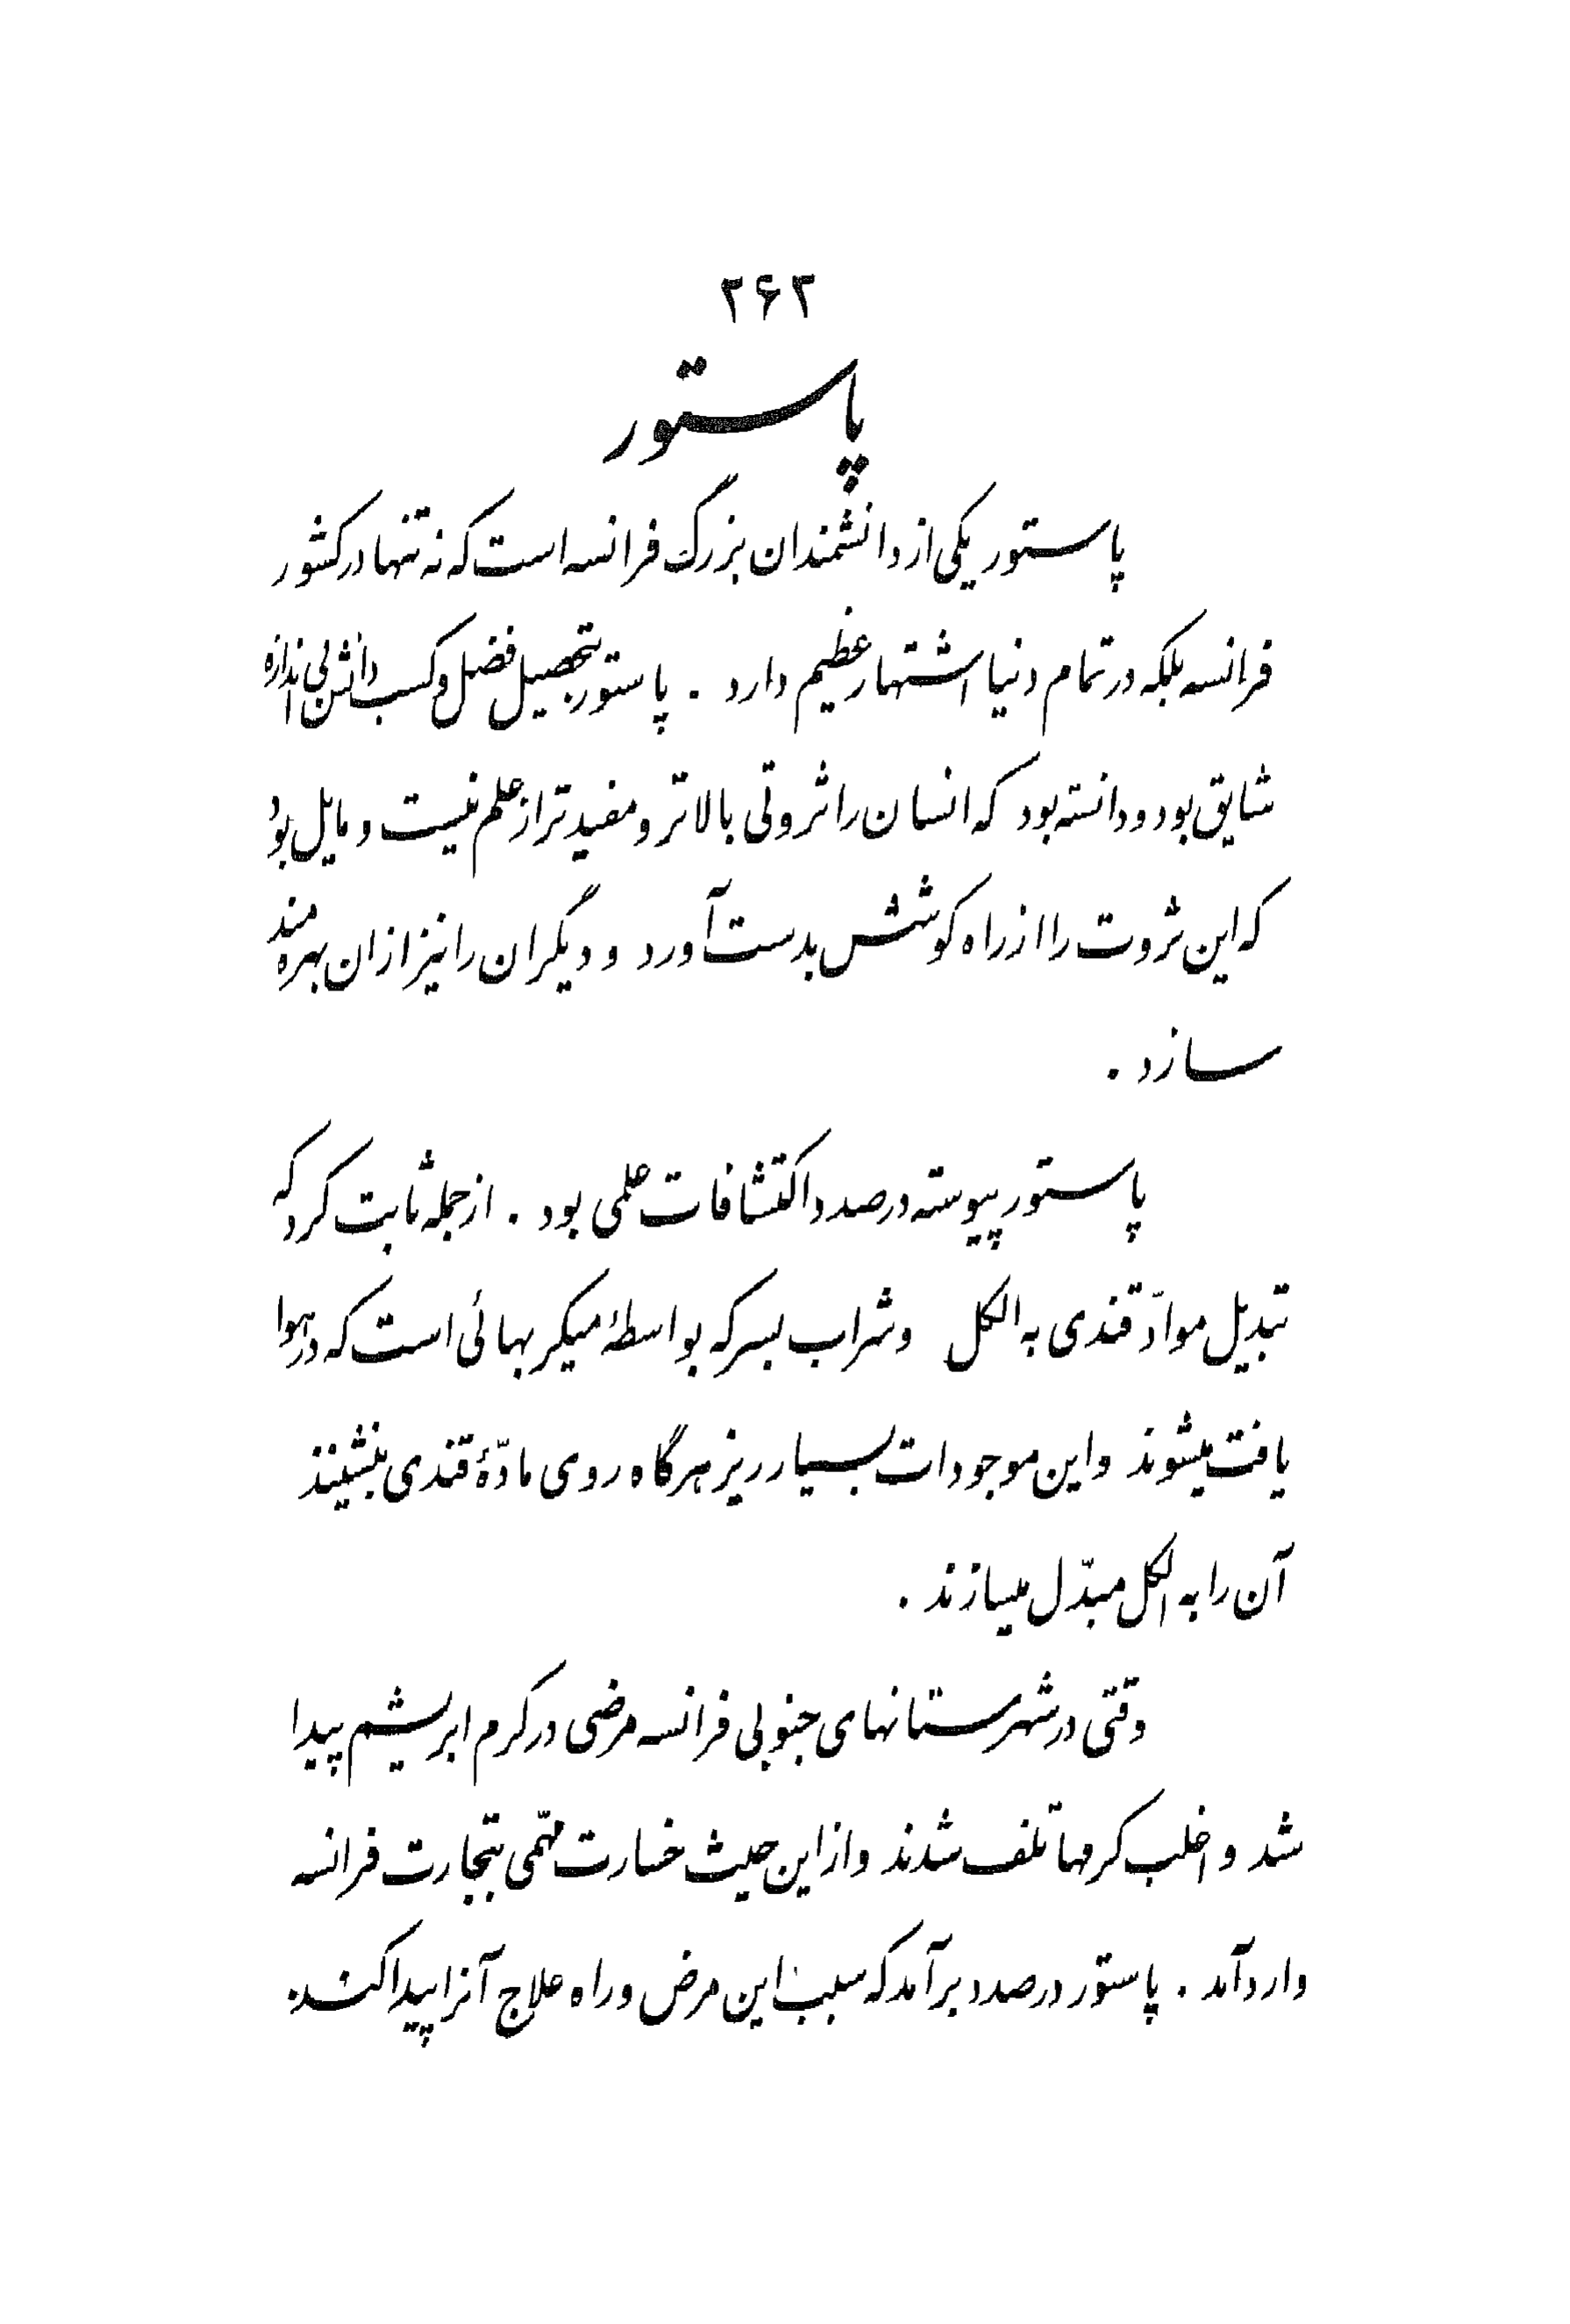 ۲۶۲
پاستور
پاستور یکی از دانشمندان بزرگ فرانسه است که نه تنها در کشور
فرانسه بلکه در تمام دنیا اشتهار عظیم دارد . پاستور بتحصیل فضل و کسب دانش بی اندازه
شایق بود و دانسته بود که انسان را ثروتی بالاتر و مفیدتر از علم نیست و مایل بود
که این ثروت را از راه کوشش بدست آورد و دیگران را نیز از ان بهره مند
سازد .
پاستور پیوسته درصدد اکتشافات علمی بود . از جمله ثابت کرد که
تبدیل موادّ قندی به الکل و شراب بسرکه بواسطهٔ میکربهائی است که در هوا
یافت میشوند و این موجودات بسیار ریز هرگاه روی مادّهٔ قندی بنشینند
آن را به الکل مبدّل میسازند .
وقتی در شهرستانهای جنوبی فرانسه مرضی در کرم ابریشم پیدا
شد و اغلب کرمها تلف شدند و از این حیث خسارت مهّمی بتجارت فرانسه
وارد آمد . پاستور درصدد برآمد که سبب این مرض و راه علاج آنرا پیدا کند .